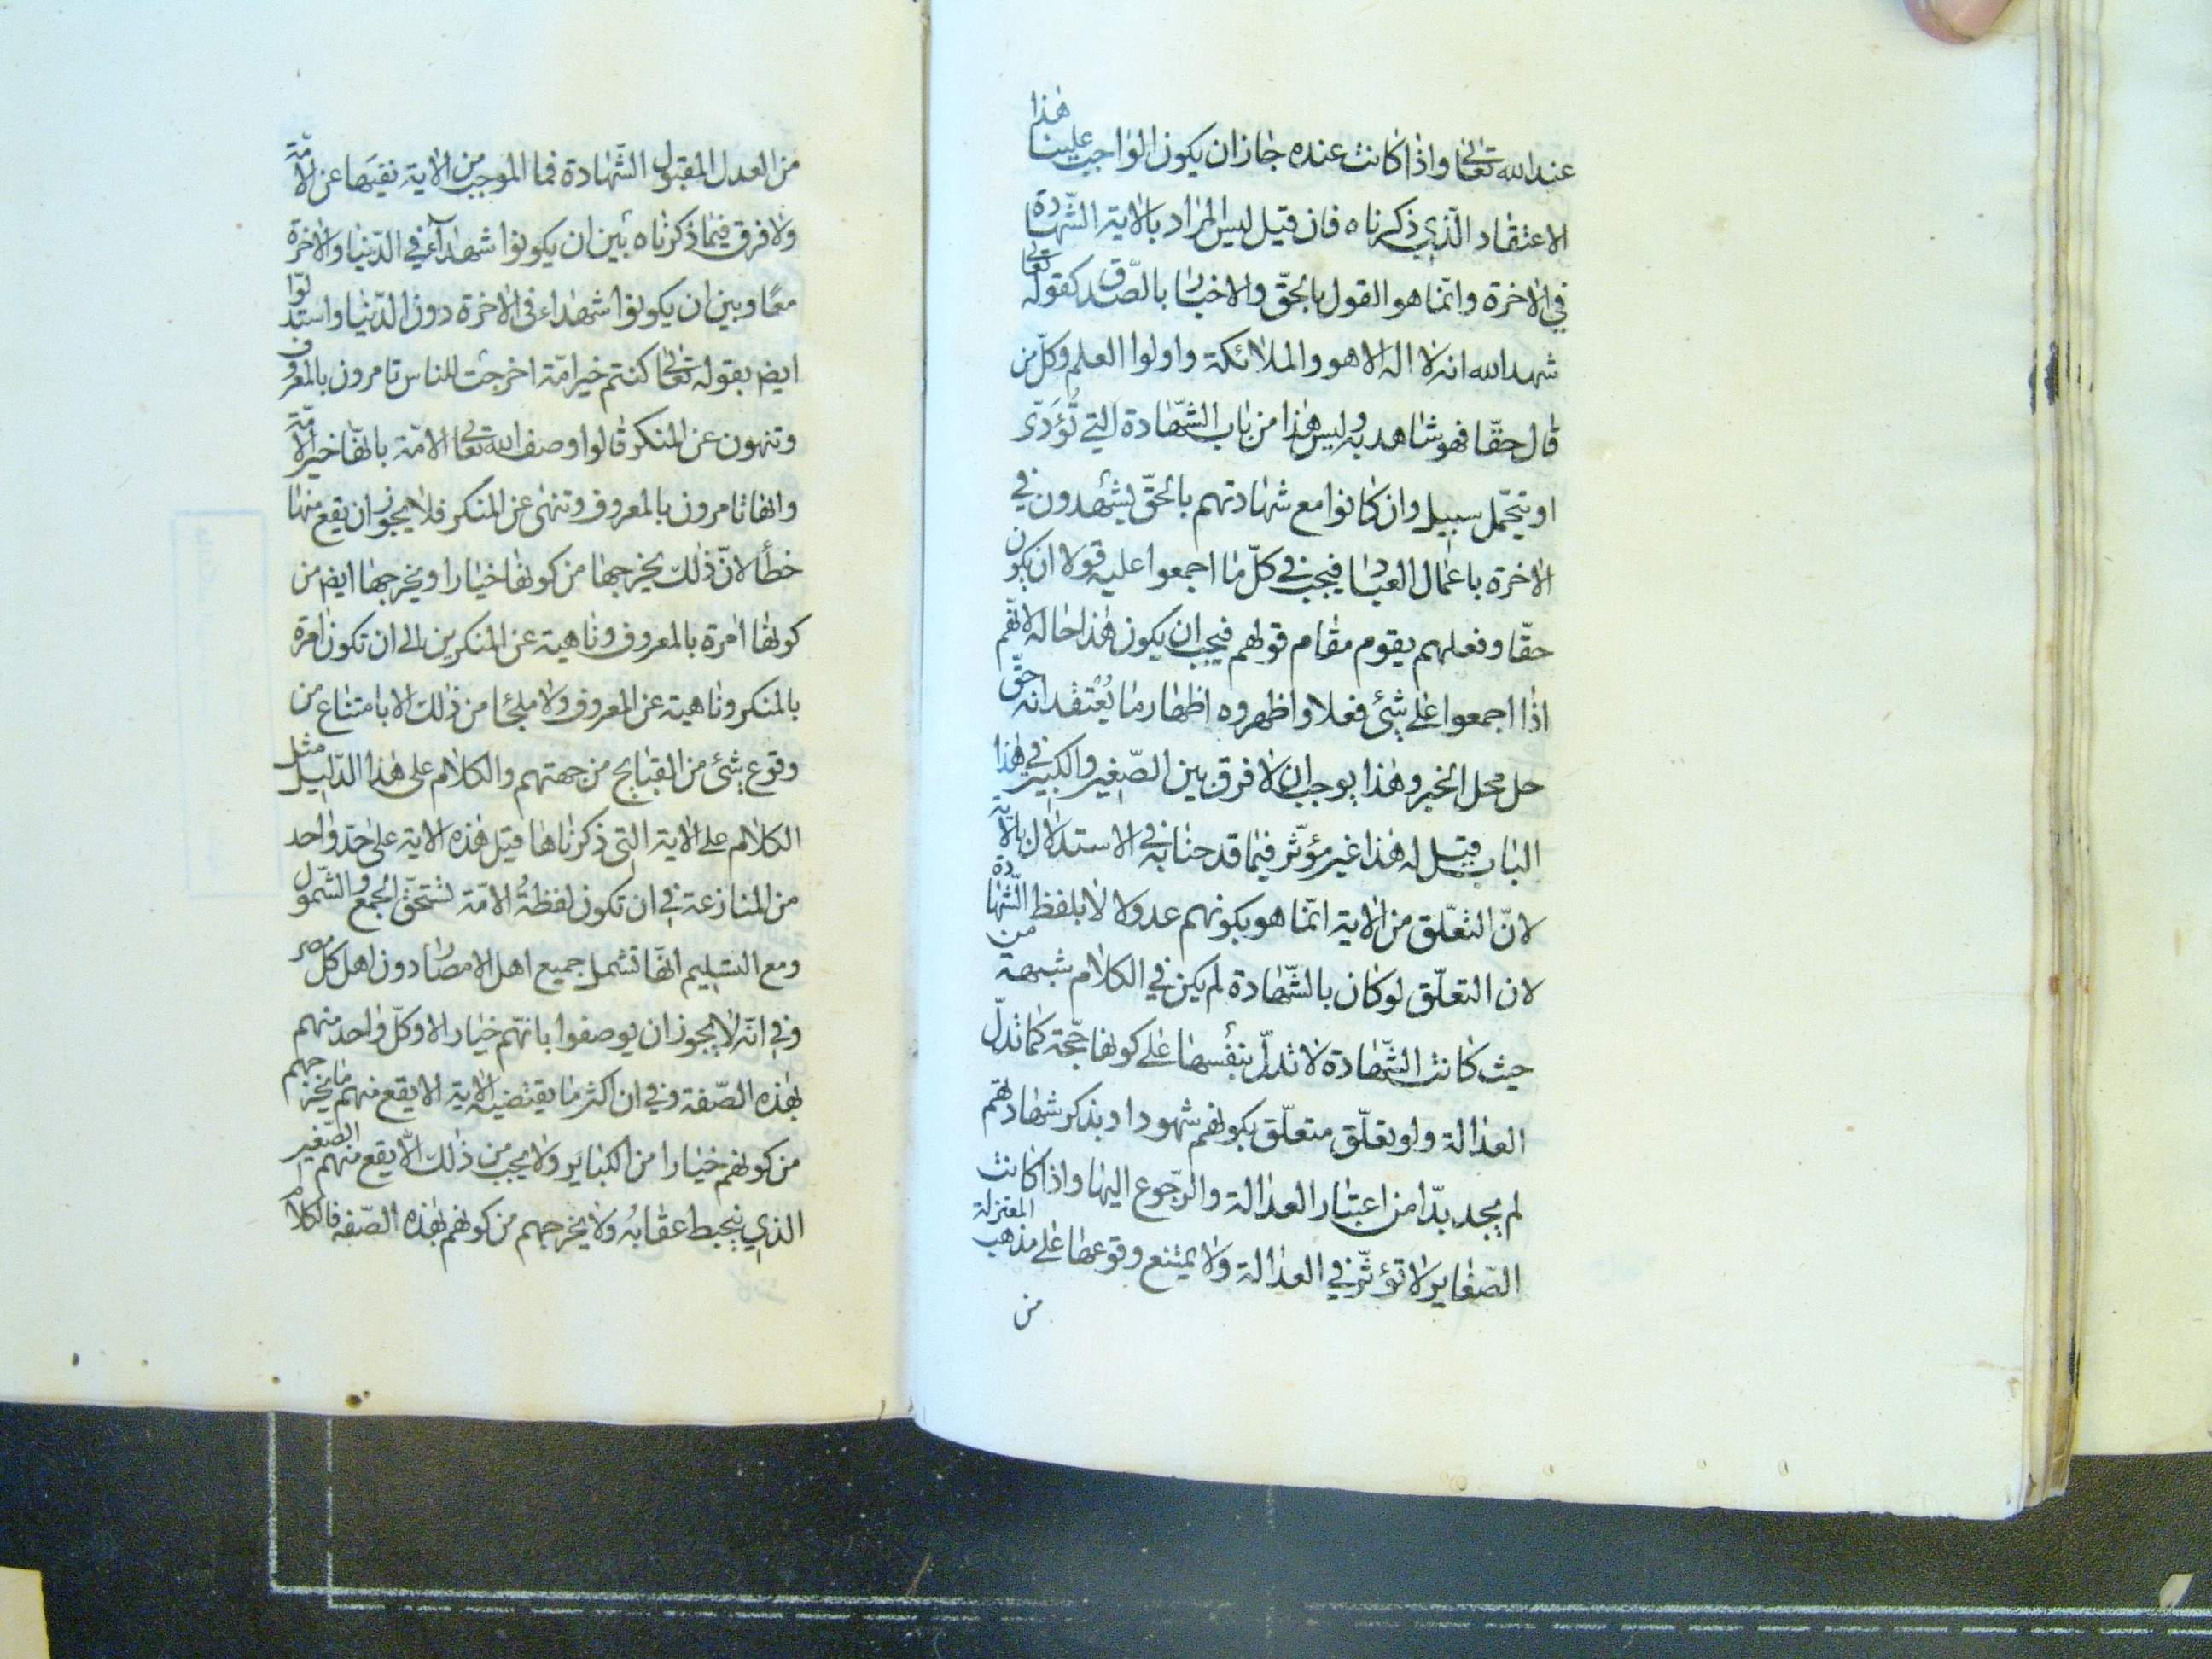 عند الله تعالى واذا كانت عنده جاز ان يكون الواجب علينا هذا
الاعتقاد الّذي ذكرناه فان قيل ليس المراد بالاية الشّهادة
في الاخرة وانّما هو القول بالحقّ والاخبار بالصّدق كقوله تعالى
شهد الله انه لا اله الا هو والملائكة واولوا العلم وكلّ من
قال حقّا فهو شاهد به وليس هذا من باب الشّهادة الّتي تُؤَدّى
او تتحمّل سبيل وان كانوا مع شهادتهم بالحقّ يشهدون في
الاخرة باعمال العباد فيجب في كلّ ما اجمعوا عليه قولا ان يكون
حقّا وفعلهم يقوم مقام قولهم فيجب ان يكون هذا حاله لانّهم
اذا اجمعوا على شئ فعلا واظهروه اظهار ما يُعتقد انه حقّ
حل محل الخبر وهذا يوجب ان لا فرق بين الصّغير والكبير في هذا
الباب قيل له هذا غير مؤثّر فيما قدحنا به في الاستدلال بالاية
لانّ التعلّق من الاية انّما هو بكونهم عدولا لا بلفظ الشّهادة
لان التعلّق لو كان بالشّهادة لم يكن في الكلام شبهة من
حيث كانت الشّهادة لا تدلّ بنفسها على كونها حجّة كما تدلّ
العدالة ولو تعلّق متعلّق بكونهم شهودا وبذكر شهادتهم
لم يجد بدّا من اعتبار العدالة والرّجوع اليها واذا كانت
الصّغاير لا تؤثّر في العدالة ولا يمتنع وقوعها على مذهب المعتزلة
من
من العدل المقبول الشّهادة فما الموجب من الاية نفيها عن الامّة
ولا فرق فيما ذكرناه بين ان يكونوا شهداء في الدّنيا والاخرة
معًا وبين ان يكونوا شهداء في الاخرة دون الدّنيا واستدلّوا
ايض بقوله تعالى كنتم خير امّة اخرجت للناس تامرون بالمعروف
وتنهون عن المنكر قالوا وصف الله تعالى الامّة بانّها خير الامّة
وانها تامرون بالمعروف وتنهى عن المنكر فلا يجوز ان يقع منها
خطأ لانّ ذلك يخرجها من كونها خيارا ويخرجها ايض من
كونها امرة بالمعروف وناهية عن المنكر ين الى ان تكون امرة
بالمنكر وناهية عن المعروف ولا ملجئا من ذلك الا بامتناع من
وقوع شئ من القبايح من جهتهم والكلام على هذا الدّليل مثل
الكلام على الاية التي ذكرناها قيل هذه الاية على حدّ واحد
من المنازعة في ان تكون لفظةُ الامّة تستحقّ الجمع والشّمول
ومع التسليم انّها تشمل جميع اهل الامصار دون اهل كل عصر
وفي انّه لا يجوز ان يوصفوا بانّهم خيار الا وكلّ واحد منهم
بهذه الصّفة وفي ان اكثر ما يقتضيه الاية الا يقع منهم ما يخرجهم
من كونهم خيارا من الكباير ولا يجب من ذلك الّا يقع منهم الصّغير
الذي ينحبط عقابُه ولا يخرجهم من كونهم بهذه الصّفه فالكلام